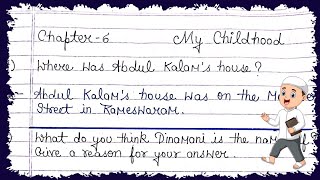 Chapter-6 My Childhood
Where was Abdul Kalam's house?
Abdul Kalam's house was on the
Street in Rameswaram.
What do you think Dinamani is the name
Give a reason for your answer.